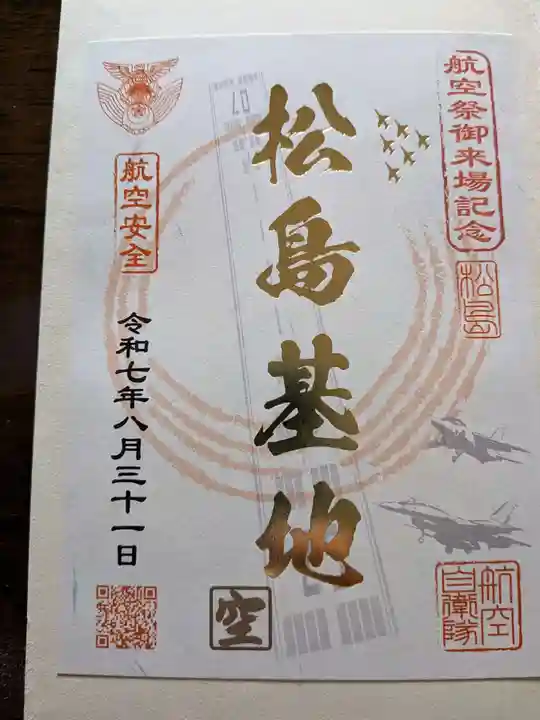 航空祭御来場記念
松島
航空
自衛隊
松島基地
空
07
航空安全
令和七年八月三十一日